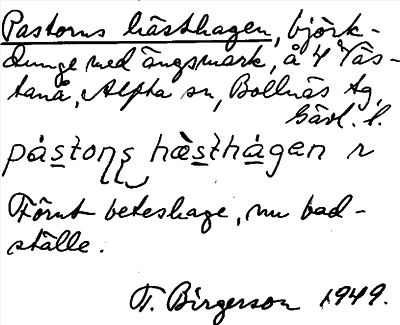 Pastorns hästhagen, björk-
dunge med ängsmark, å 4 Väs-
tanå, Alfta sn, Bollnäs tg,
Gävl. l.
pàston̥ş hæ̀sthàgen r
Förut beteshage, nu bad-
ställe.
T. Birgerson 1949.